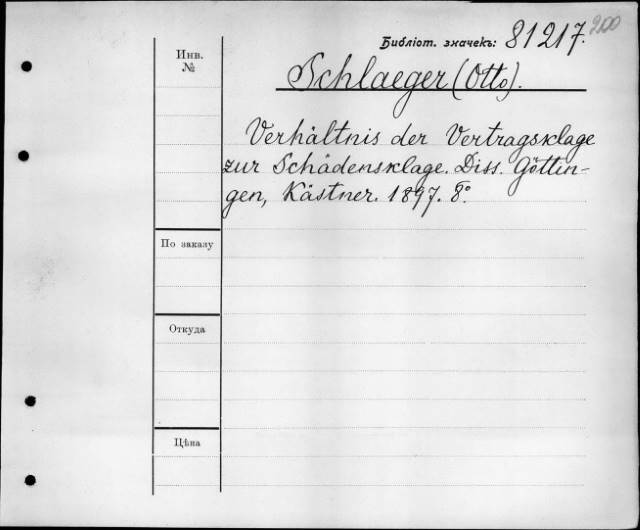 Библіот. значекъ: 81217. 200
Инв.
№
Schlaeger (Otto).
Verhältnis der Vertragsklage
zur Schädensklage. Diss. Göttin-
gen, Kästner. 1897. 8°
По заказу
Откуда
Цѣна